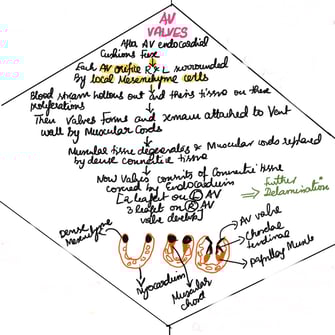 AV
VALVES
After AV endocardial
Cushions Fuse
Each AV orifice R & L surrounded
By local Mesenchyme cells
Blood stream hollows out and thins tissue on these
proliferations
Then Valves Forms and remain attached to Vent
wall by Muscular Cords
Muscular tissue degenerates & Muscular cords replaced
by dense connective tissue
Now valves consists of Connective tissue
covered by Endocardium
[2 leaflet on L AV
3 leaflet on R AV
valve develop]
Further
Delamination
Dense
Mesenchyme
Myocardium
Muscular
chord
AV valve
Chordae
tendinae
Papillary Muscle